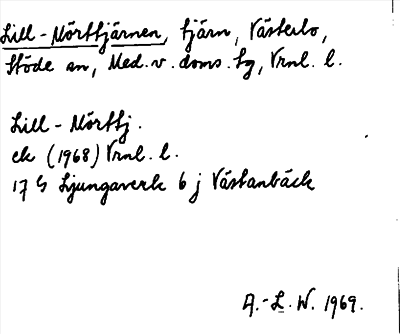 Lill-Mörttjärnen, tjärn, Västerlo,
Stöde sn, Med.v.doms.sg, Vrnl. l.
Lill-Mörttj.
ek (1968) Vrnl. l.
17 G Ljungaverk 6 j Västanbäck
A.-L.W. 1969.